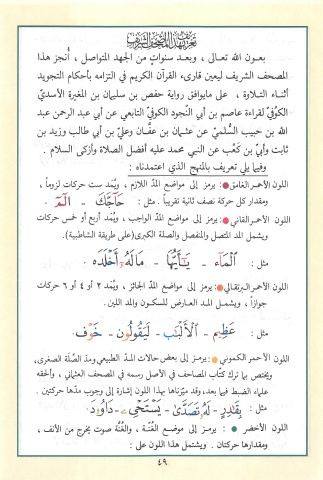 تعريف بهذا المصحف الشريف
بعون الله تعالى ، وبعد سنوات من الجهد المتواصل ، أُنجز هذا
المصحف الشريف ليعين قارىء القرآن الكريم في التزامه بأحكام التجويد
أثناء التلاوة ، على مايوافق رواية حفص بن سليمان بن المغيرة الأسديّ
الكوفيّ لقراءة عاصم بن أبي النجود الكوفيّ التابعي عن أبي عبد الرحمن عبد
الله بن حبيب السُّلميّ عن عثمان بن عفّان وعليّ بن أبي طالب وزيد بن
ثابت وأبيّ بن كَعْب عن النبي محمد عليه أفضل الصلاة وأزكى السلام .
وفيما يلي تعريف بالمنهج الذي اعتمدناه :
اللون الأحمر الغامق : يرمز إلى مواضع المدّ اللازم ، ويُمَد ست حركات لزوماً ،
ومقدار كل حركة نصف ثانية تقريباً . مثل : حَآجَّكَ - الٓمٓ
اللون الأحمر القاني : يرمز إلى مواضع المدّ الواجب ، ويُمَد أربع أو خمس حركات
ويشمل المد المتصل والمنفصل والصلة الكبرى (على طريقة الشاطبية).
مثل : ٱلْمَآءَ - يَٰٓأَيُّهَا - مَالَهُۥٓ أَخْلَدَهُۥ
اللون الأحمر البرتقالي : يرمز إلى مواضع المدّ الجائز ، ويُمَد ٢ أو ٤ أو ٦ حركات
جوازاً ، ويشمل المد العارض للسكون والمد اللين.
مثل : عَظِيم - ٱلْأَلْبَٰب - لَيَقُولُون - خَوْف
اللون الأحمر الكموني : يرمز إلى بعض حالات المدّ الطبيعي ومدّ الصِّلة الصغرى،
ويختص بما ترك كتّاب المصاحف في الأصل رسمه في المصحف العثماني ، وألحقه
علماء الضبط فيما بعد، وقد ميّزناها بهذا اللون إشارة إلى وجوب مدّها حركتين.
مثل : بِقَٰدِرٍ - لَهُۥ تَصَدَّىٰ - يَسْتَحْيِۦ - دَاوُۥدَ .
اللون الأخضر : يرمز إلى موضع الغُنّة ، والغُنّة صوت يخرج من الأنف ،
ومقدارها حركتان . ويشتمل هذا اللون على :
٤٩